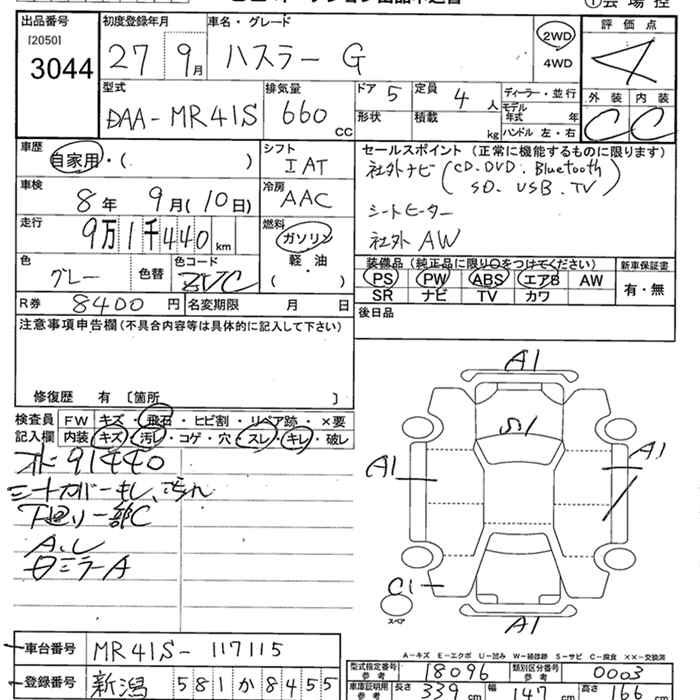 出品番号 初度登録年月 車名・グレード 評価点
[2050]
3044 27 9月 ハスラー G 2WD 4WD 4
型式 排気量 ドア 5 定員 4 人 ディーラー・並行 外装 内装
DAA-MR41S 660 CC 形状 積載 kg モデル年式 年 C C
ハンドル 左・右
車歴 自家用・( ) シフト IAT セールスポイント (正常に機能するものに限ります)
社外ナビ (CD.DVD.Bluetooth
SD. USB. TV)
車検 8年 9月(10日) 冷房 AAC シートヒーター
走行 9万1千440km 燃料 ガソリン 社外 AW
軽・油
( )
色 グレー 色替 色コード ZVC
装備品 (純正品に限り○をつけてください) 新車保証書
PS PW ABS エアB AW 有・無
SR ナビ TV カワ
R券 8400円 名変期限 月 日 後日品
注意事項申告欄(不具合内容等は具体的に記入して下さい)
修復歴 有 〔箇所 〕
検査員 FW キズ・飛石・ヒビ割・リペア跡・×要
記入欄 内装 キズ・汚レ・コゲ・穴・スレ・キレ・破レ
91440
下廻リ一部C
ミラーA
A1
S1
A1
A1
C1
スペア
A1
A-キズ E-エクボ U-凹み W-補修跡 S-サビ C-腐食 ××-交換済
車台番号 MR41S-117115
登録番号 新潟 581か8455
型式指定番号 参考 18096 類別区分番号 参考 0003
車庫証明用 参考 長さ 339cm 幅 147cm 高さ 166cm